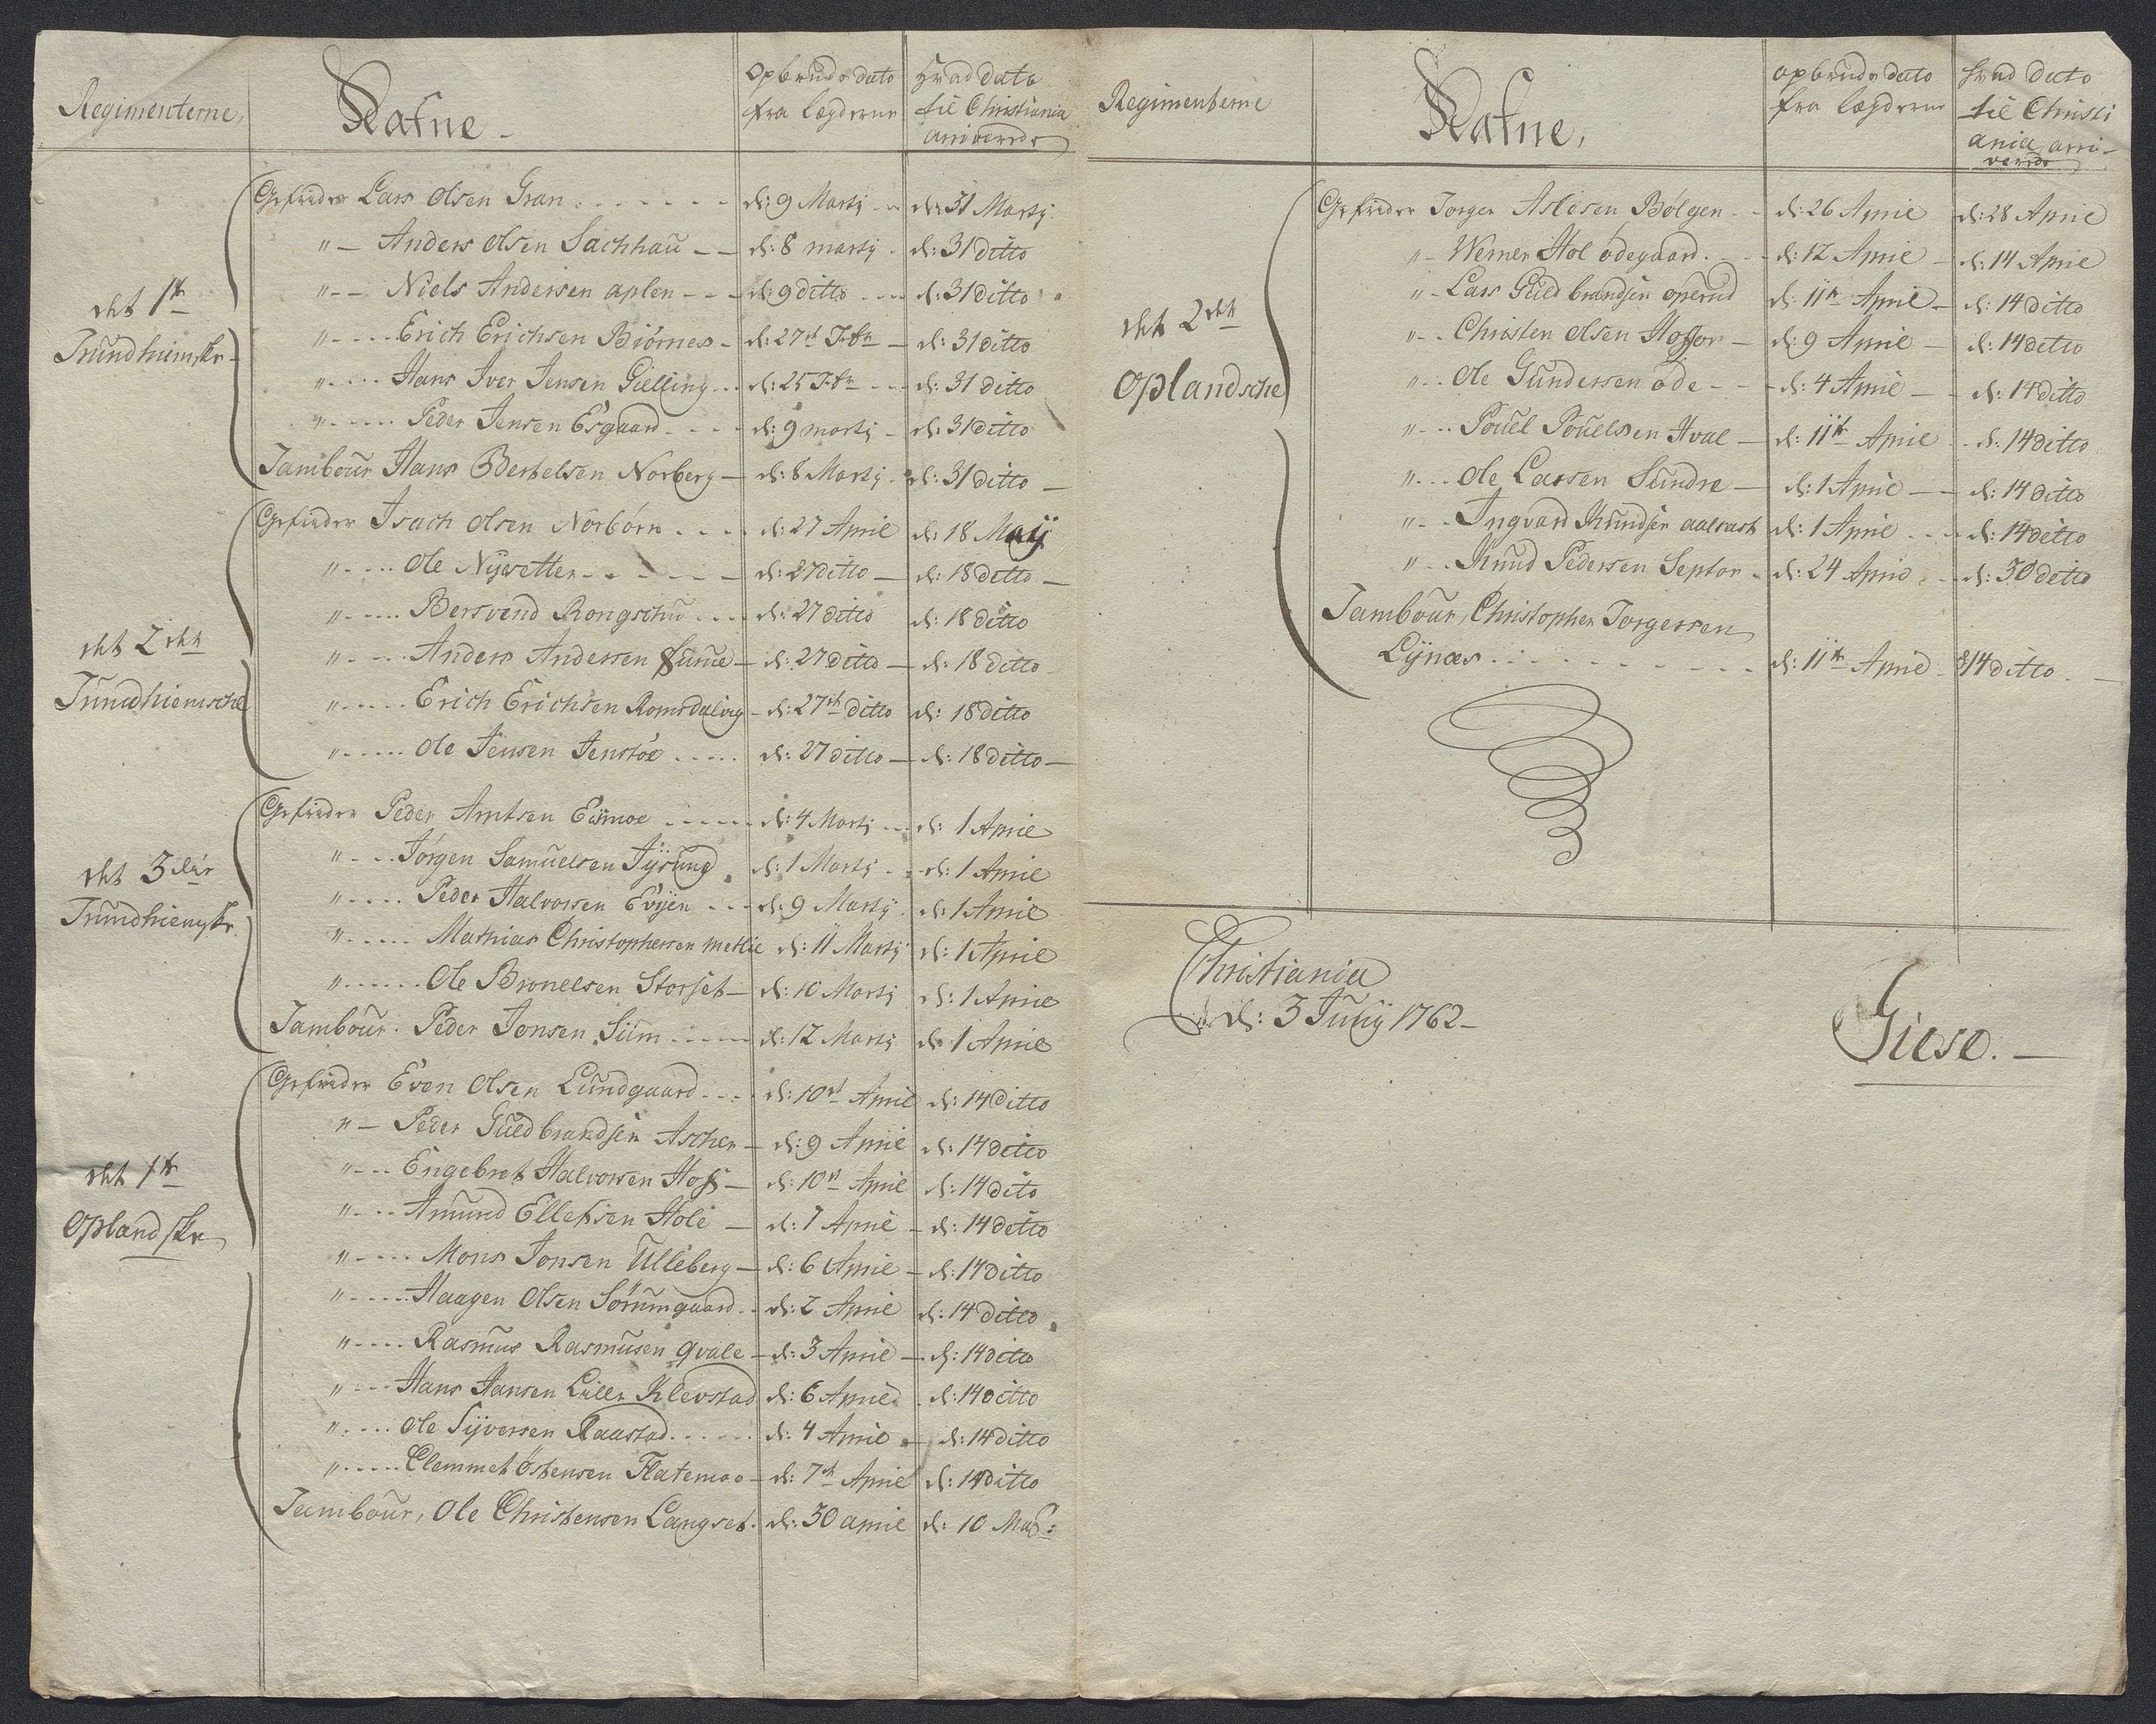 Regimenterne, Nafne - Opbruds dato Hvad dato
fra Lægderne til Christiania
arriverede
Gefrider Lars Olsen Gran . . . . . . . d: 9 Martÿ - d: 31 Martÿ.
" - Anders Olsen Sachhau - - d: 8 martÿ - d: 31 ditto
" - - Niels Andersen aplen - - - d: 9 ditto - - d: 31 ditto
det 1te
" - - - - Erich Erichsen Biörnes - d: 27de Fbr - d: 31 ditto
Trundhiemske
" - - - - Hans Iver Jensen Gielling - - d: 25 Fbr - - d: 31 ditto
" - - - - - Peder Jensen Esgaard - - - - d: 9 martÿ - d: 31 ditto
Tambour Hans Berthelsen Norberg - d: 8 Martÿ - d: 31 ditto -
Gefrider Isach Olsen Norbörn . . . . d: 27 April d: 18 Maÿ
" - - - - Ole Nÿesetter - - - - - - d: 27 ditto - d: 18 ditto -
" - - - - - Bersvend Rongschu . . . . d: 27 ditto d: 18 ditto
det 2den
" - - - - Anders Andersen Sume - d: 27 ditto - d: 18 ditto
Trundhiemsche
" - - - - - Erich Erichsen Romsdaling - d: 27de ditto d: 18 ditto
" - - - - - Ole Jensen Jenstöe . . . . . d: 27 ditto - d: 18 ditto -
Gefrider Peder Arntsen Eümoe - - - - - d: 4 Martÿ - - d: 1 April
" - - - Jörgen Samuelsen Tÿsung d: 1 Martÿ - - d: 1 April
det 3die
" - - - - Peder Halvorsen Evÿen - - - d: 9 Martÿ d: 1 April
Trundhiemske
" - - - - - Mathias Christophersen metlie d: 11 Martÿ d: 1 April
" - - - - - - Ole Broneelsen Storset - d: 10 Martÿ d: 1 April
Tambour. Peder Jonsen Siim - - - - - d: 12 Martÿ d: 1 April
Gefrider Even Olsen Lundgaard - - - - d: 10de April d: 14 ditto
" - Peder Guldbrandsen Ascher - d: 9 April d: 14 ditto
det 1te
" - - - Engebret Halvorsen Hoff - d: 10de April d: 14 dito
" - - - Amund Ellefsen Hole - d: 7 April - d: 14 ditto
Oplandske
" - - - - Mons Jonsen Ulleberg - d: 6 April - d: 14 ditto
" - - - - - Haagen Olsen Sörumgaard - - d: 2 April d: 14 ditto
" - - - - Rasmus Rasmusen qvale - d: 3 April - d: 14 ditto
" - - - Hans Hansen Lille Klevstad d: 6 April d: 14 ditto
" - - - - Ole Sÿversen Raastad . . . . . . d: 4 April - d: 14 ditto
" - - - - - Clemmet Östensen Flatemoe - d: 7de April d: 14 ditto
Tambour, Ole Christensen Langset. d: 30 april d: 10 Maÿ:
Regimenterne Nafne, opbruds dato hvad dato
fra Lægderne til Christi
ania arri-
verede
Gefrider Jorgen Aslesen Bölgen - - d: 26 April d: 28 April
" - Werner Hol ödegaard. - - - d: 12 April - d: 14 April
" - Lars Guldbrandsen operud d: 11te April - d: 14 ditto
det 2den
" - - Christen Olsen Hoffor - d: 9 April - d: 14 ditto
Oplandsche
" - - Ole Gundersen öde - - - d: 4 April - - d: 14 ditto
" - - - Pouel Pouelsen Hval - d: 11te April - - d: 14 ditto
" - - - Ole Larsen Sundre - d: 1 April - - d: 14 ditto
" - - Ingvard Knudsen aalrast d: 1 April - - - d: 14 ditto
" - - Knud Pedersen Septon - d: 24 April - - d: 30 ditto
Tambour, Christopher Jorgersen
Lÿnæs . . . . . . . . . . . . d: 11te April - d 14 ditto - -
Christiania
d: 3 Junÿ 1762 -
Giese. -